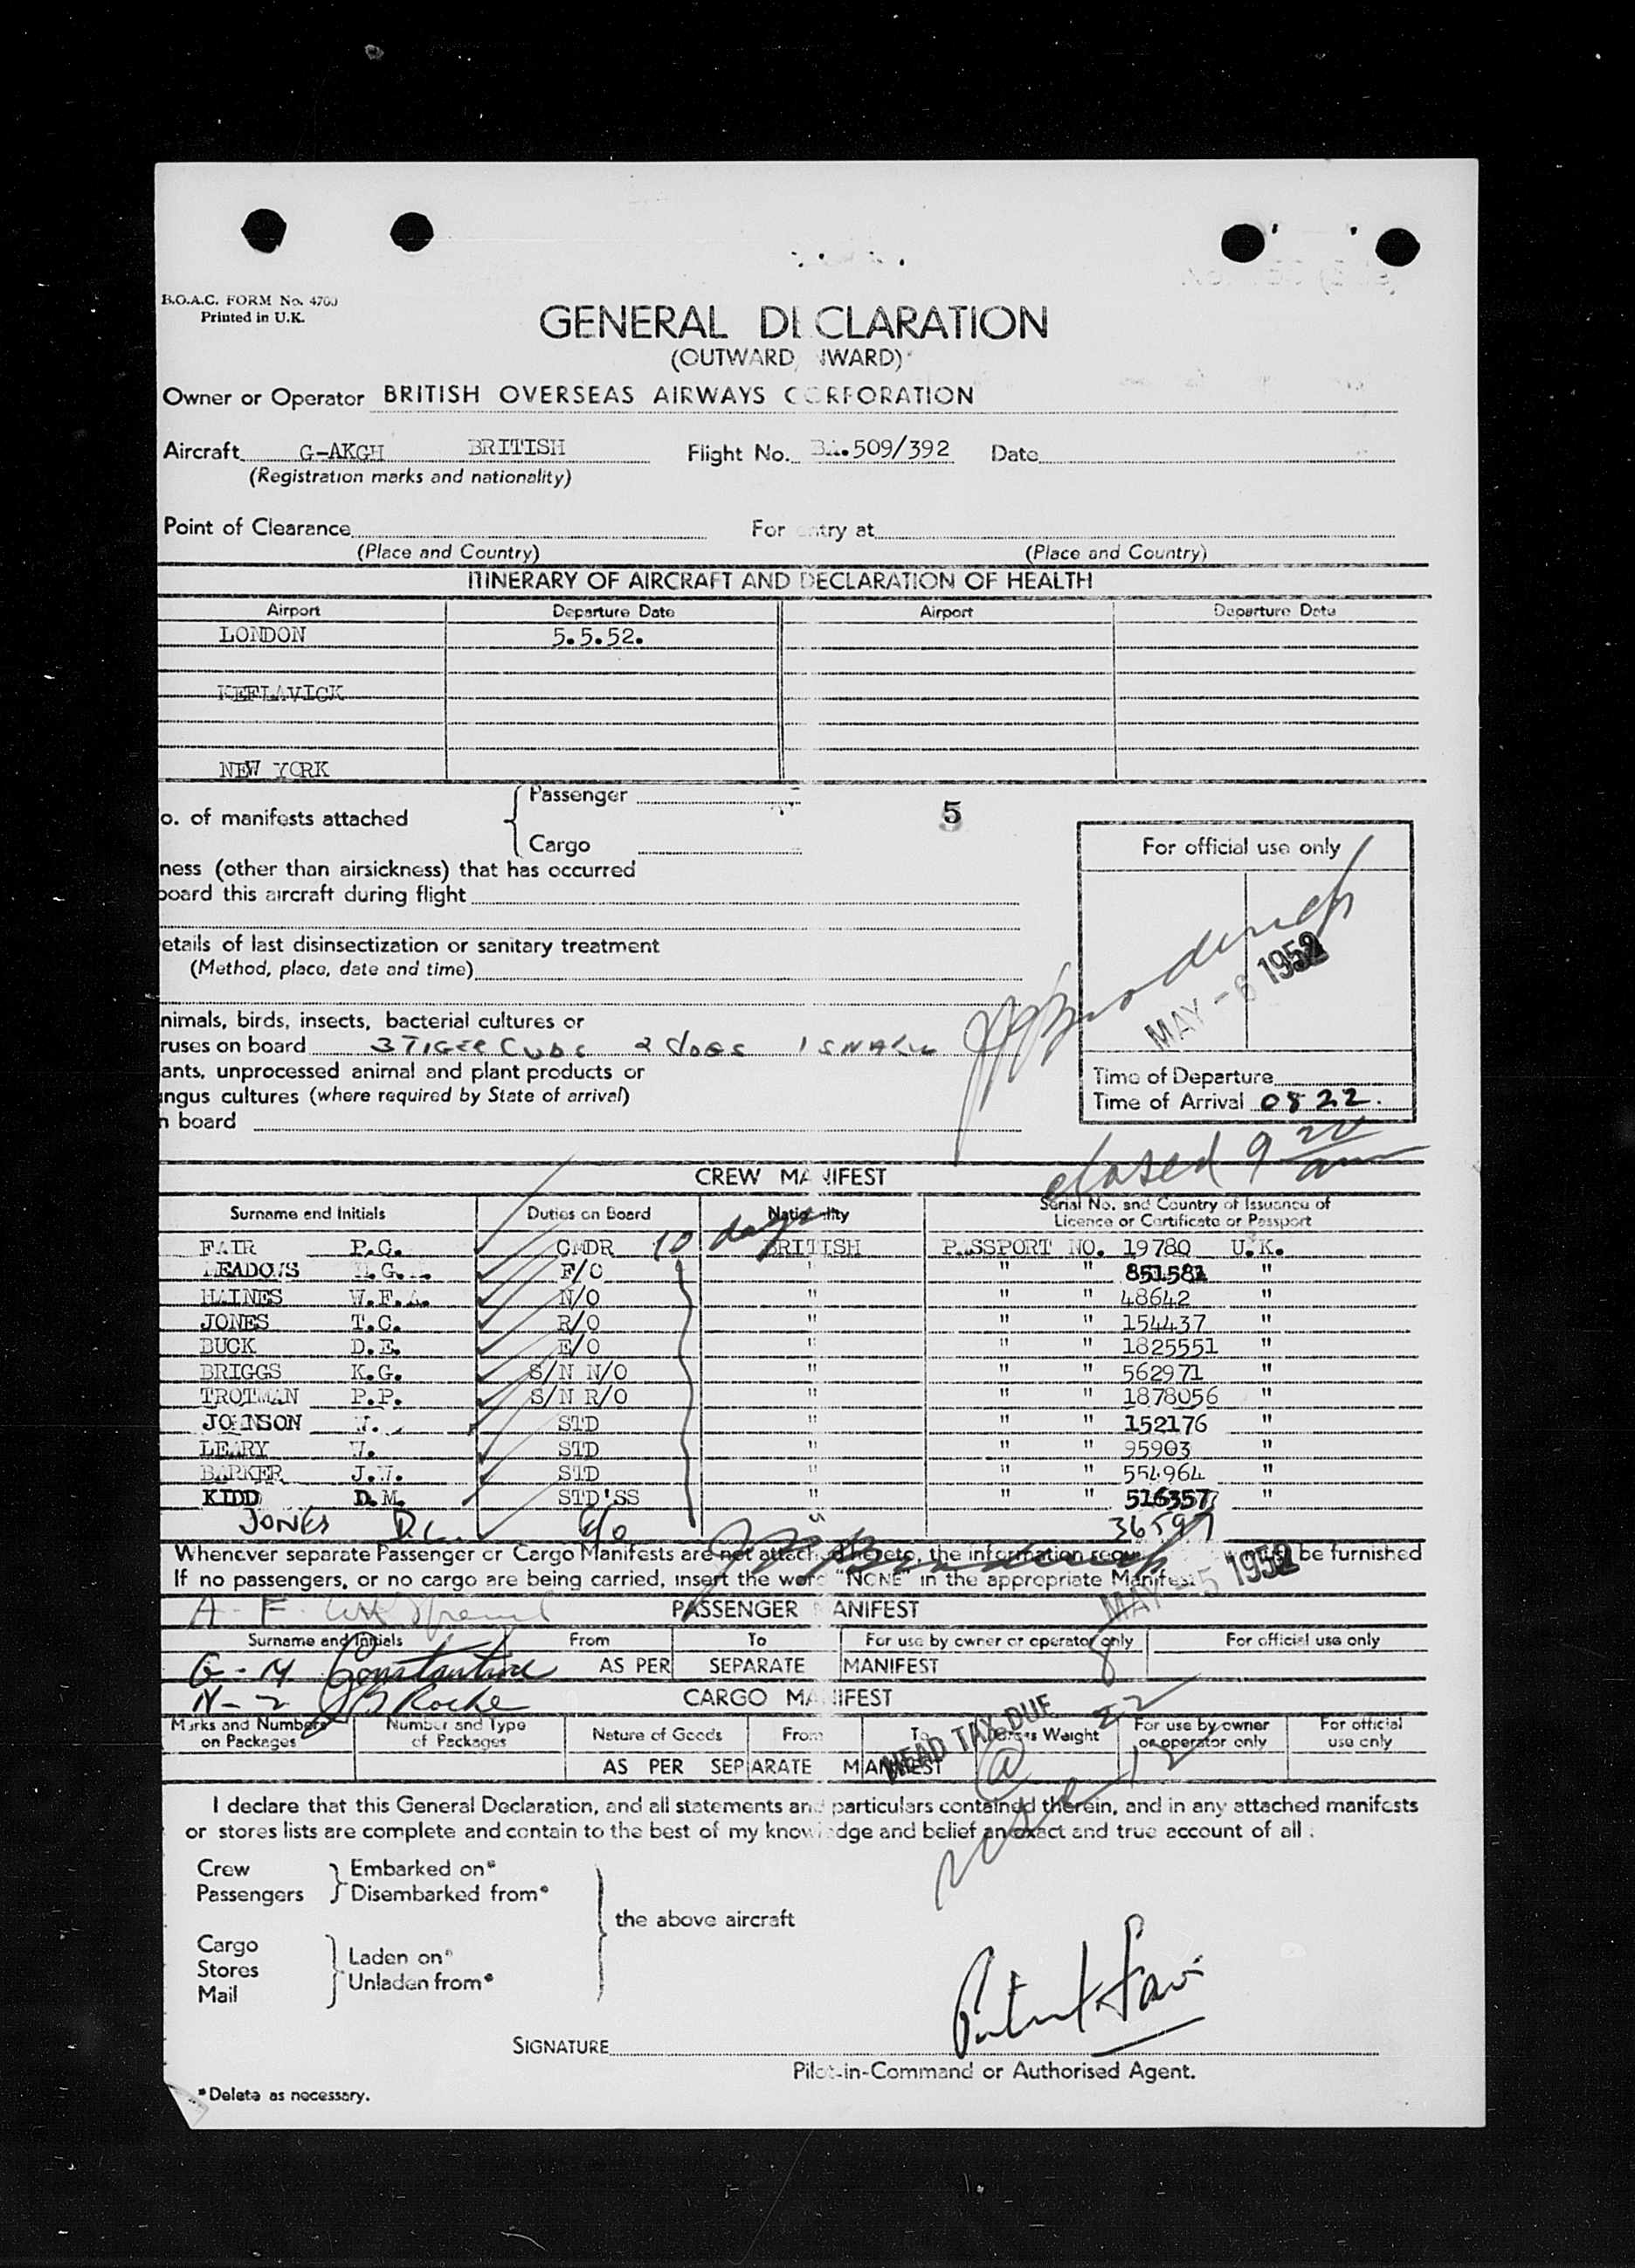 B.O.A.C. FORM No. 4700
Printed in U.K.
GENERAL DECLARATION
(OUTWARD, INWARD)*
Owner or Operator BRITISH OVERSEAS AIRWAYS CORPORATION
Aircraft G-AKGH BRITISH Flight No. BA.509/392 Date
(Registration marks and nationality)
Point of Clearance For entry at
(Place and Country) (Place and Country)
ITINERARY OF AIRCRAFT AND DECLARATION OF HEALTH
Airport Departure Date Airport Departure Date
LONDON 5.5.52.
KEFLAVICK
NEW YORK
Passenger
o. of manifests attached 5
Cargo
For official use only
ness (other than airsickness) that has occurred
board this aircraft during flight
etails of last disinsectization or sanitary treatment
(Method, place, date and time)
MAY - 6 1952
nimals, birds, insects, bacterial cultures or
ruses on board 3 TIGER CUBS 2 dogs 1 SNAKE
ants, unprocessed animal and plant products or
ungus cultures (where required by State of arrival)
n board
Time of Departure
Time of Arrival 0822.
closed 9 20/am
CREW MANIFEST
Surname and Initials Duties on Board Nationality Serial No. and Country of Issuance of
Licence or Certificate or Passport
10 days
FAIR P.G. CMDR BRITISH PASSPORT NO. 19780 U.K.
MEADOWS F/O " " " 851581 "
HAINES W.F.A. N/O " " " 48642 "
JONES T.C. R/O " " " 154437 "
BUCK D.E. E/O " " " 1825551 "
BRIGGS K.G. S/N N/O " " " 562971 "
TROTMAN P.P. S/N R/O " " " 1878056 "
JOHNSON W. STD " " " 152176 "
LEARY W. STD " " " 95903 "
BARKER J.W. STD " " " 554964 "
KIDD D.M. STD'SS " " " 516357 "
JONES D.L. E/O " 36597
Whenever separate Passenger or Cargo Manifests are not attached hereto, the information required must be furnished
If no passengers, or no cargo are being carried, insert the word "NONE" in the appropriate Manifest
MAY - 5 1952
A - F
PASSENGER MANIFEST
Surname and Initials From To For use by owner or operator only For official use only
G - M Constantine AS PER SEPARATE MANIFEST
N - Z JB Roche CARGO MANIFEST
Marks and Numbers on Packages Number and Type of Packages Nature of Goods From To Gross Weight For use by owner or operator only For official use only
HEAD TAX DUE
@
AS PER SEPARATE MANIFEST
I declare that this General Declaration, and all statements and particulars contained therein, and in any attached manifests
or stores lists are complete and contain to the best of my knowledge and belief an exact and true account of all :
Crew Embarked on*
Passengers Disembarked from*
the above aircraft
Cargo
Stores Laden on*
Mail Unladen from*
SIGNATURE Patrick Fair
Pilot-in-Command or Authorised Agent.
*Delete as necessary.